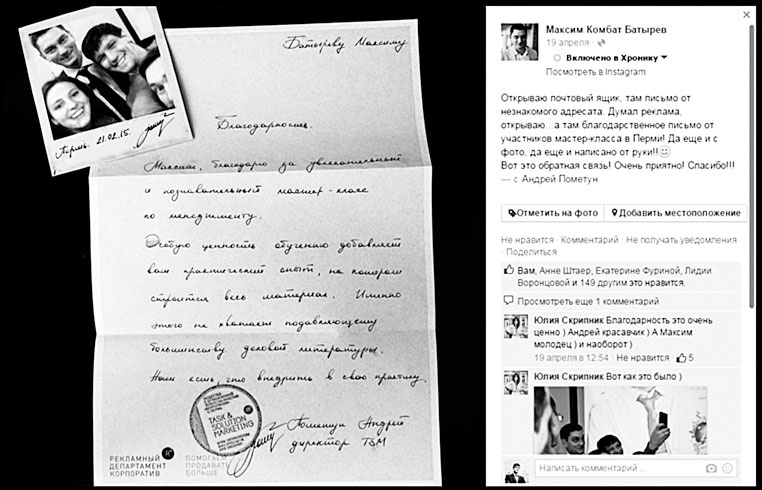 Пермь. 21.02.15.
Батыреву Максиму
Благодарность.
Максим, благодарю за увлекательный
и познавательный мастер-класс
по менеджменту.
Особую ценность обучению добавляет
ваш практический опыт, на котором
строится весь материал. Именно
этого не хватает подавляющему
большинству деловой литературы.
Нам есть, что внедрить в свою практику.
TASK &
SOLUTION
MARKETING
Пометун Андрей
директор TSM
РЕКЛАМНЫЙ
ДЕПАРТАМЕНТ
КОРПОРАТИВ
ПОМОГАЕМ
ПРОДАВАТЬ
БОЛЬШЕ
Максим Комбат Батырев
19 апреля
Включено в Хронику
Посмотреть в Instagram
Открываю почтовый ящик, там письмо от
незнакомого адресата. Думал реклама,
открываю...а там благодарственное письмо от
участников мастер-класса в Перми! Да еще и с
фото, да еще и написано от руки!!
Вот это обратная связь! Очень приятно! Спасибо!!!
— с Андрей Пометун.
Отметить на фото
Добавить местоположение
Не нравится · Комментарий · Не получать уведомления
· Поделиться
Вам, Анне Штаер, Екатерине Фуриной, Лидии
Воронцовой и 149 другим это нравится.
Просмотреть еще 1 комментарий
Юлия Скрипник Благодарность это очень
ценно ) Андрей красавчик ) А Максим
молодец ) и наоборот )
19 апреля в 12:54 · Не нравится · 5
Юлия Скрипник Вот как это было )
Написать комментарий ...